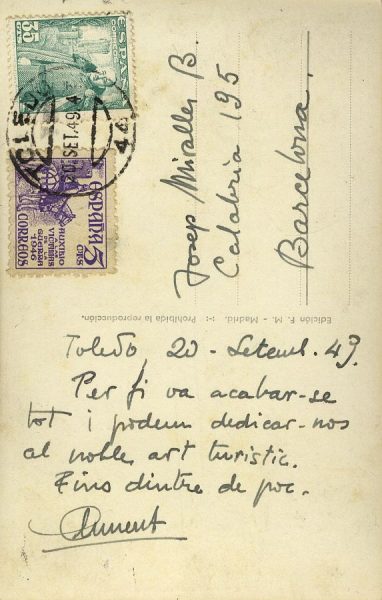 35 CTS
ESPAÑA
TOLEDO
20 SET. 49
ESPAÑA 5 CTS
AUXILIO
A LAS
VICTIMAS
DE LA
GUERRA
1946
CORREOS
Josep Miralles B.
Calabria 195
Barcelona.
Edición F. M. - Madrid. :-: Prohibida la reproducción.
Toledo, 20 - Setemb. 49.
Per fi va acabar-se
tot i podem dedicar-nos
al noble art turistic.
Fins dintre de poc.